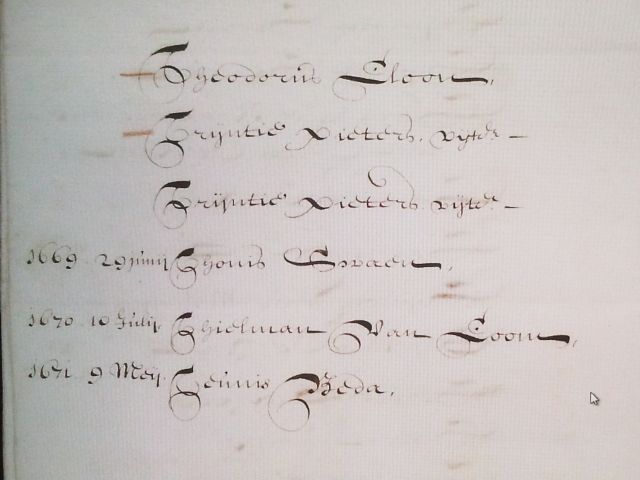 Theodorus Cloon,
Trijntie Pieters, vyter
Trijntie Pieters vijter
1669 29 junij Thonis Swaen,
1670 10 Julij Thielman Van Loon,
1671 9 Meij Teunis Reda,